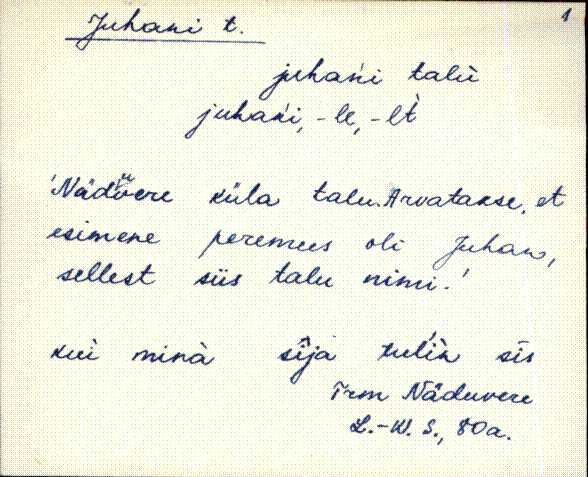 1
Juhani t.
juhańi talù
juhańi, -le, -lt̀
'Näduvere küla talu. Arvatakse, et
esimene peremees oli Juhan,
sellest siis talu nimi.'
kui minà sīja tulìn sīs
Trm Näduvere
L.-W. S., 80a.